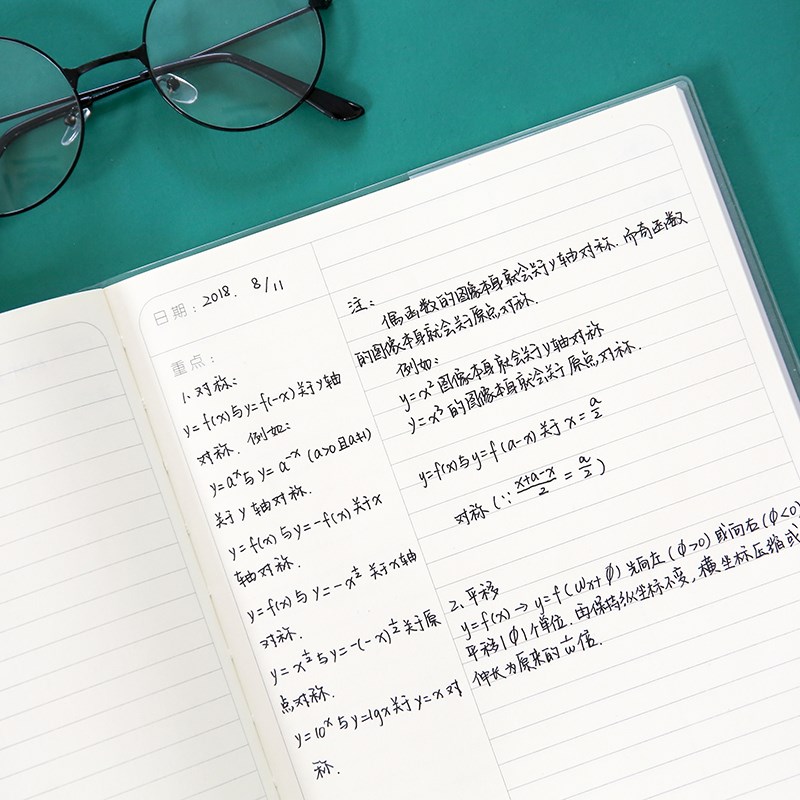 日期：2018. 8/11
重点：
1. 对称：
y=f(x)与y=f(-x)关于y轴
对称. 例如：
y=aˣ与y=a⁻ˣ (a>0且a≠1)
关于y轴对称.
y=f(x)与y=-f(x)关于x
轴对称.
y=f(x)与y=-x^½关于x轴
对称.
y=x^½与y=-(-x)^½关于原
点对称.
y=10ˣ与y=lgx关于y=x对
称.
注：
偶函数的图像本身就会关于y轴对称. 而奇函数
的图像本身就会关于原点对称.
例如：
y=x²图像本身就会关于y轴对称
y=x³的图像本身就会关于原点对称.
y=f(x)与y=f(a-x)关于x=a/2
对称 (∵ (x+a-x)/2 = a/2)
2. 平移
y=f(x)→y=f(ωx+φ) 先向左(φ>0)或向右(φ<0)
平移|φ|个单位. 再保持纵坐标不变, 横坐标压缩或
伸长为原来的1/ω倍.